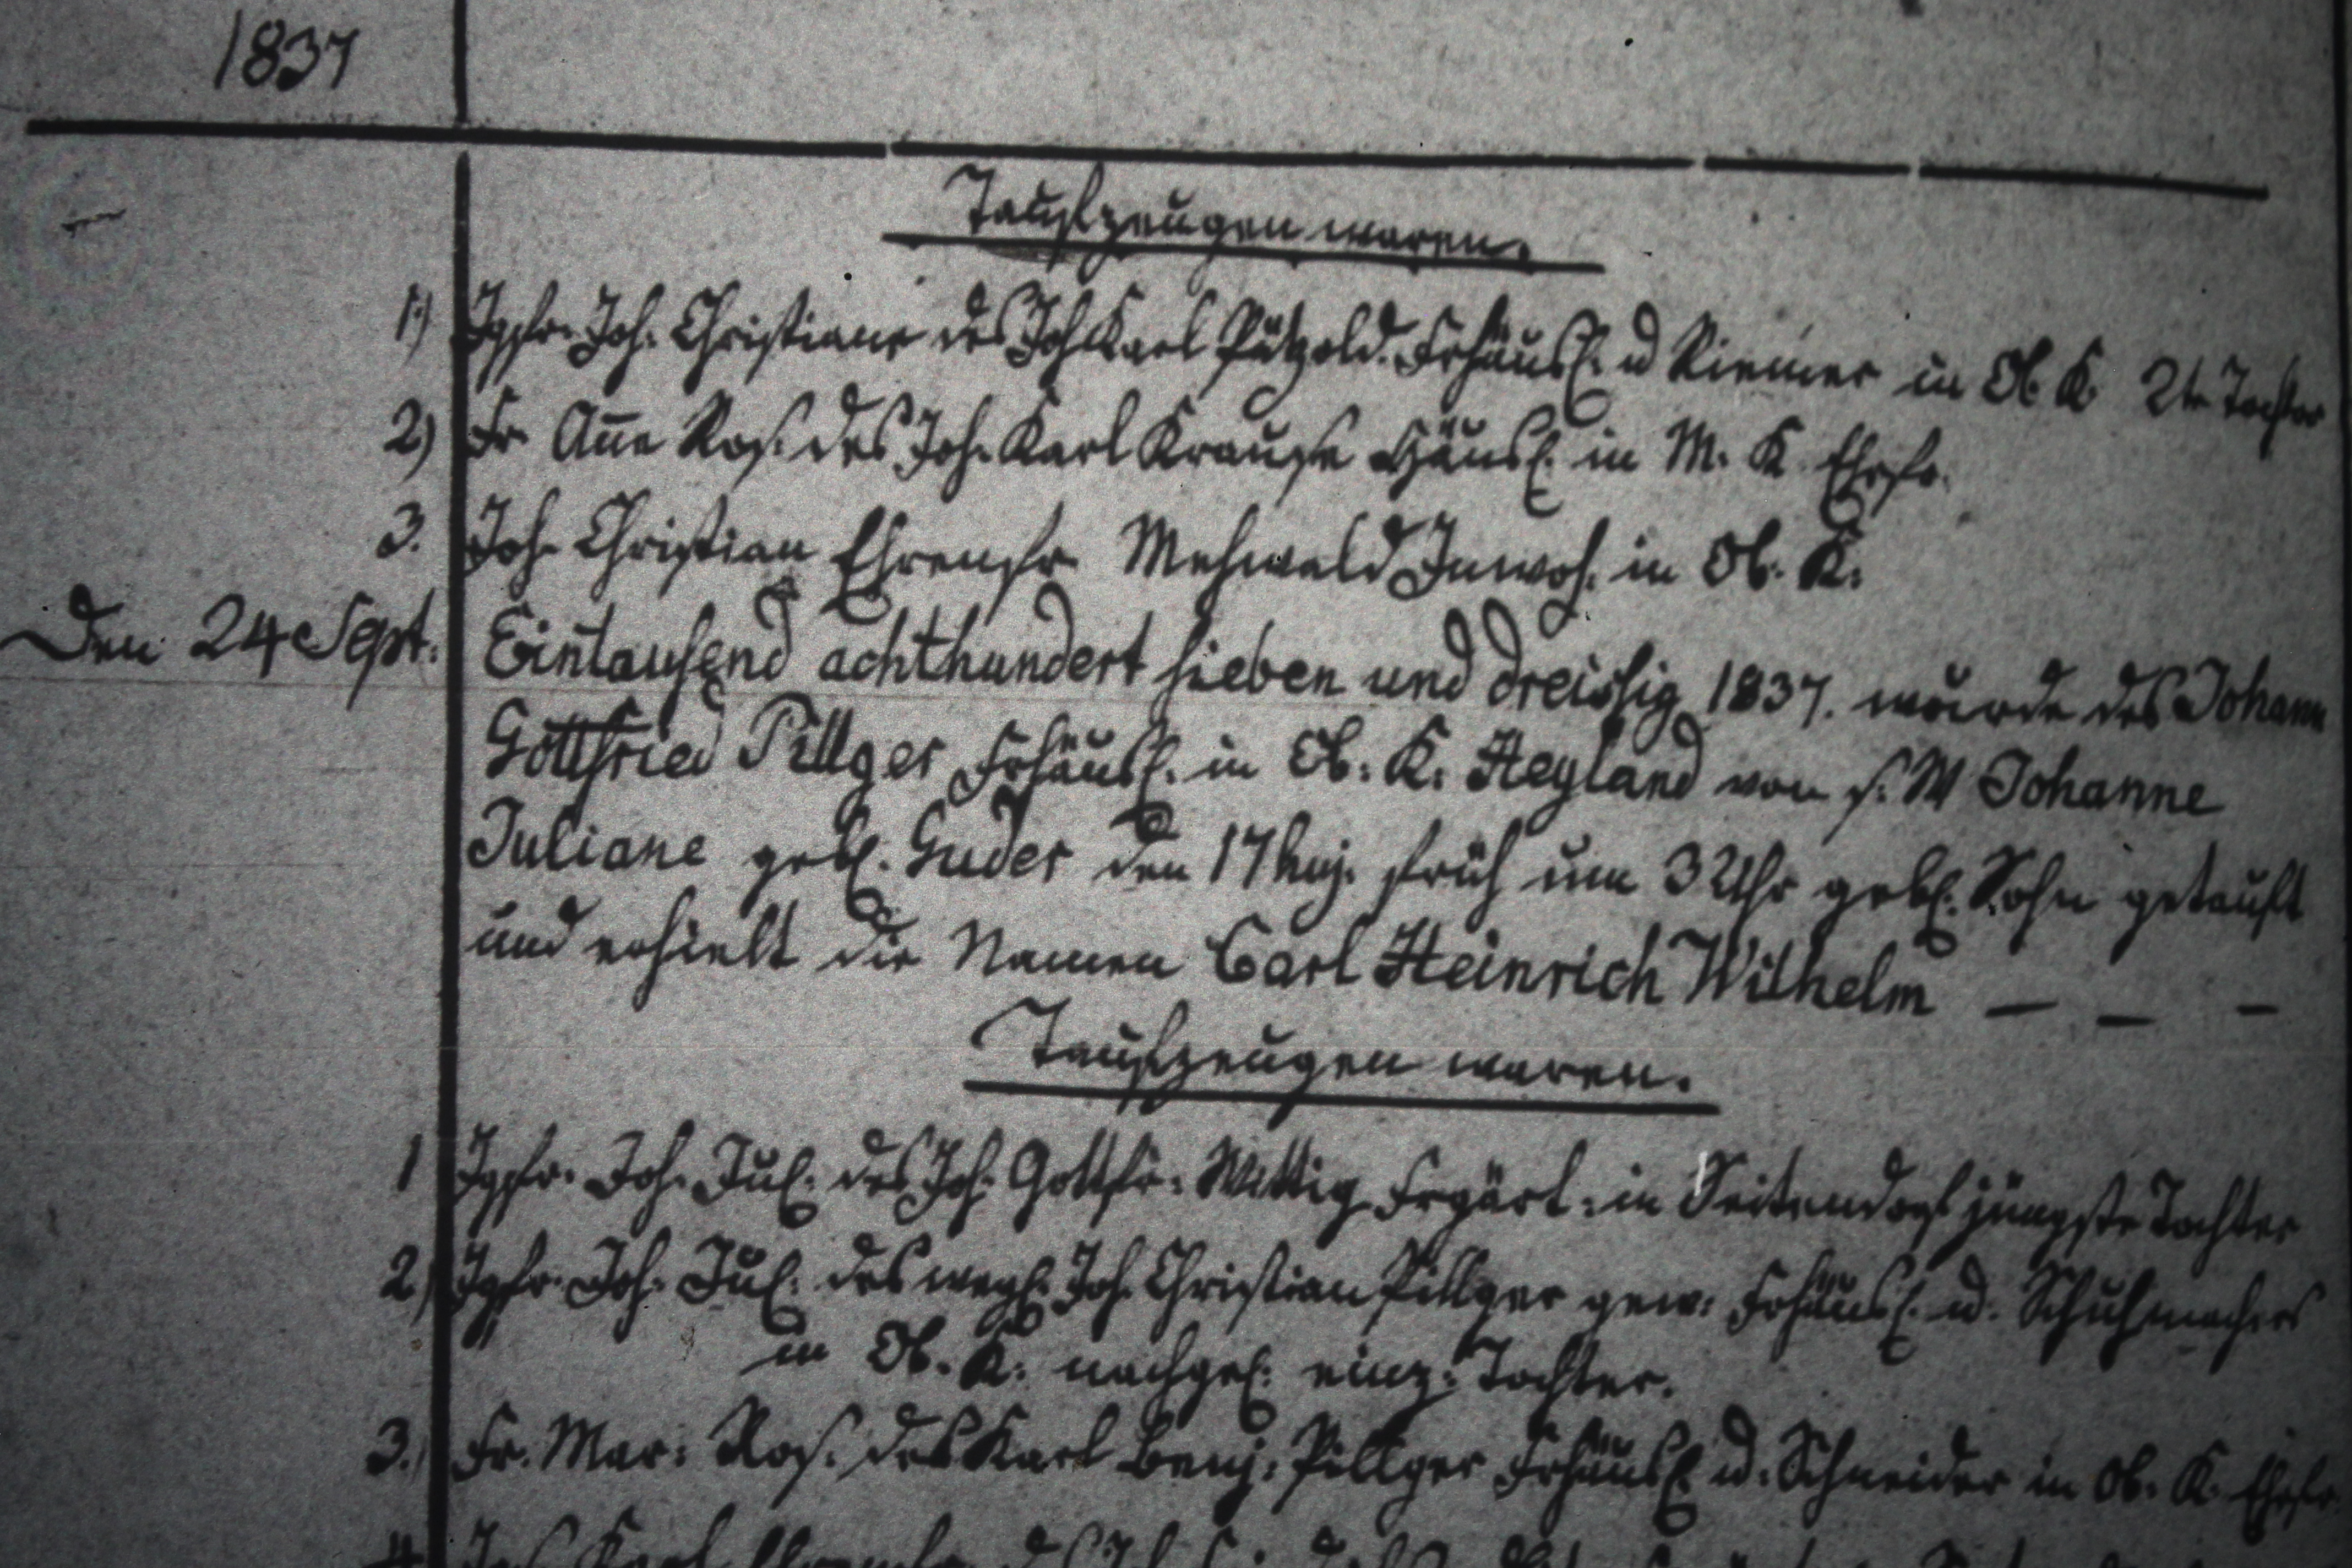 1837
Taufzeugen waren.
1) Jgfr. Joh. Christiane des Joh Karl Pätzold. Frhäusl. u Riemer in Ob. K. 2te Tochter
2) Fr. Añe Ros. des Joh. Karl Krause Häusl. in M. K. Ehefr.
3. Joh. Christian Ehrenfr. Mehwald Inwoh. in Ob. K.
Den 24 Sept. Eintausend achthundert sieben und dreissig 1837. wurde des Johann
Gottfried Pillger Frhäusl. in Ob. K. Heyland von s. W Johanne
Juliane gebl. Guder den 17 huj. früh um 3 Uhr gebl. Sohn getauft
und erhielt die Namen Carl Heinrich Wilhelm — — —
Taufzeugen waren.
1 Jgfr. Joh. Jul. des Joh. Gottfr. Wittig Frgärt. in Seitendorf jüngste Tochter
2) Jgfr. Joh. Jul. des wegl. Joh. Christian Pillger gew. Frhäusl. u. Schuhmachers
in Ob. K. nachgel. einz. Tochter.
3.) Fr. Mar. Ros. des Karl Benj. Pillger Frhäusl. u. Schneider in Ob. K. Ehefr.
4 Karl